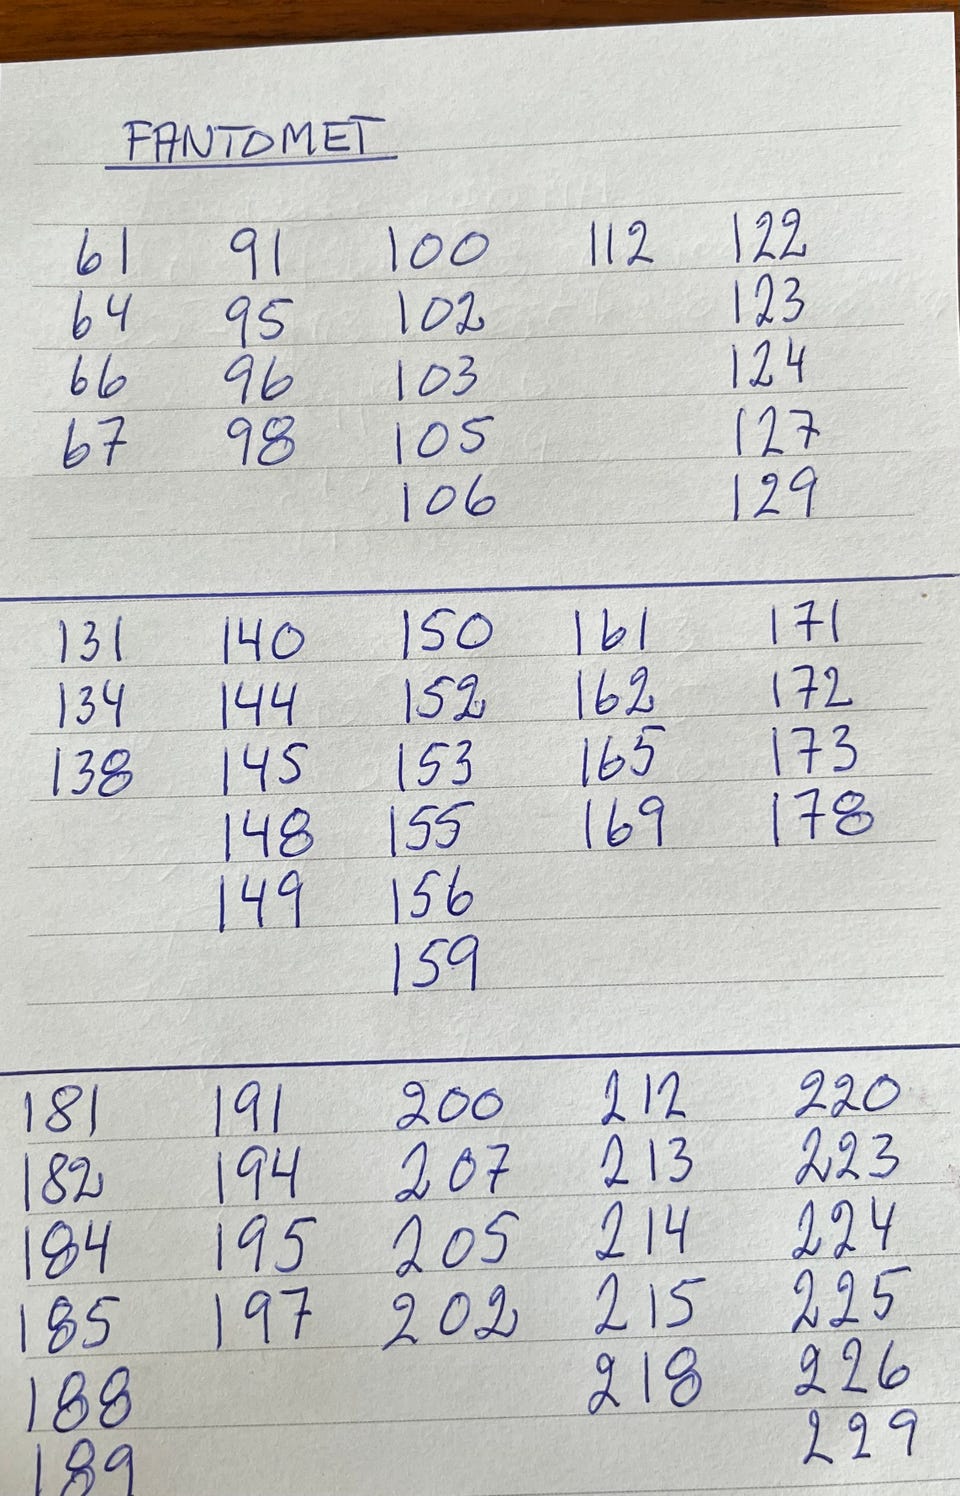 FANTOMET
61 91 100 112 122
64 95 102 123
66 96 103 124
67 98 105 127
106 129
131 140 150 161 171
134 144 152 162 172
138 145 153 165 173
148 155 169 178
149 156
159
181 191 200 212 220
182 194 207 213 223
184 195 205 214 224
185 197 202 215 225
188 218 226
189 229